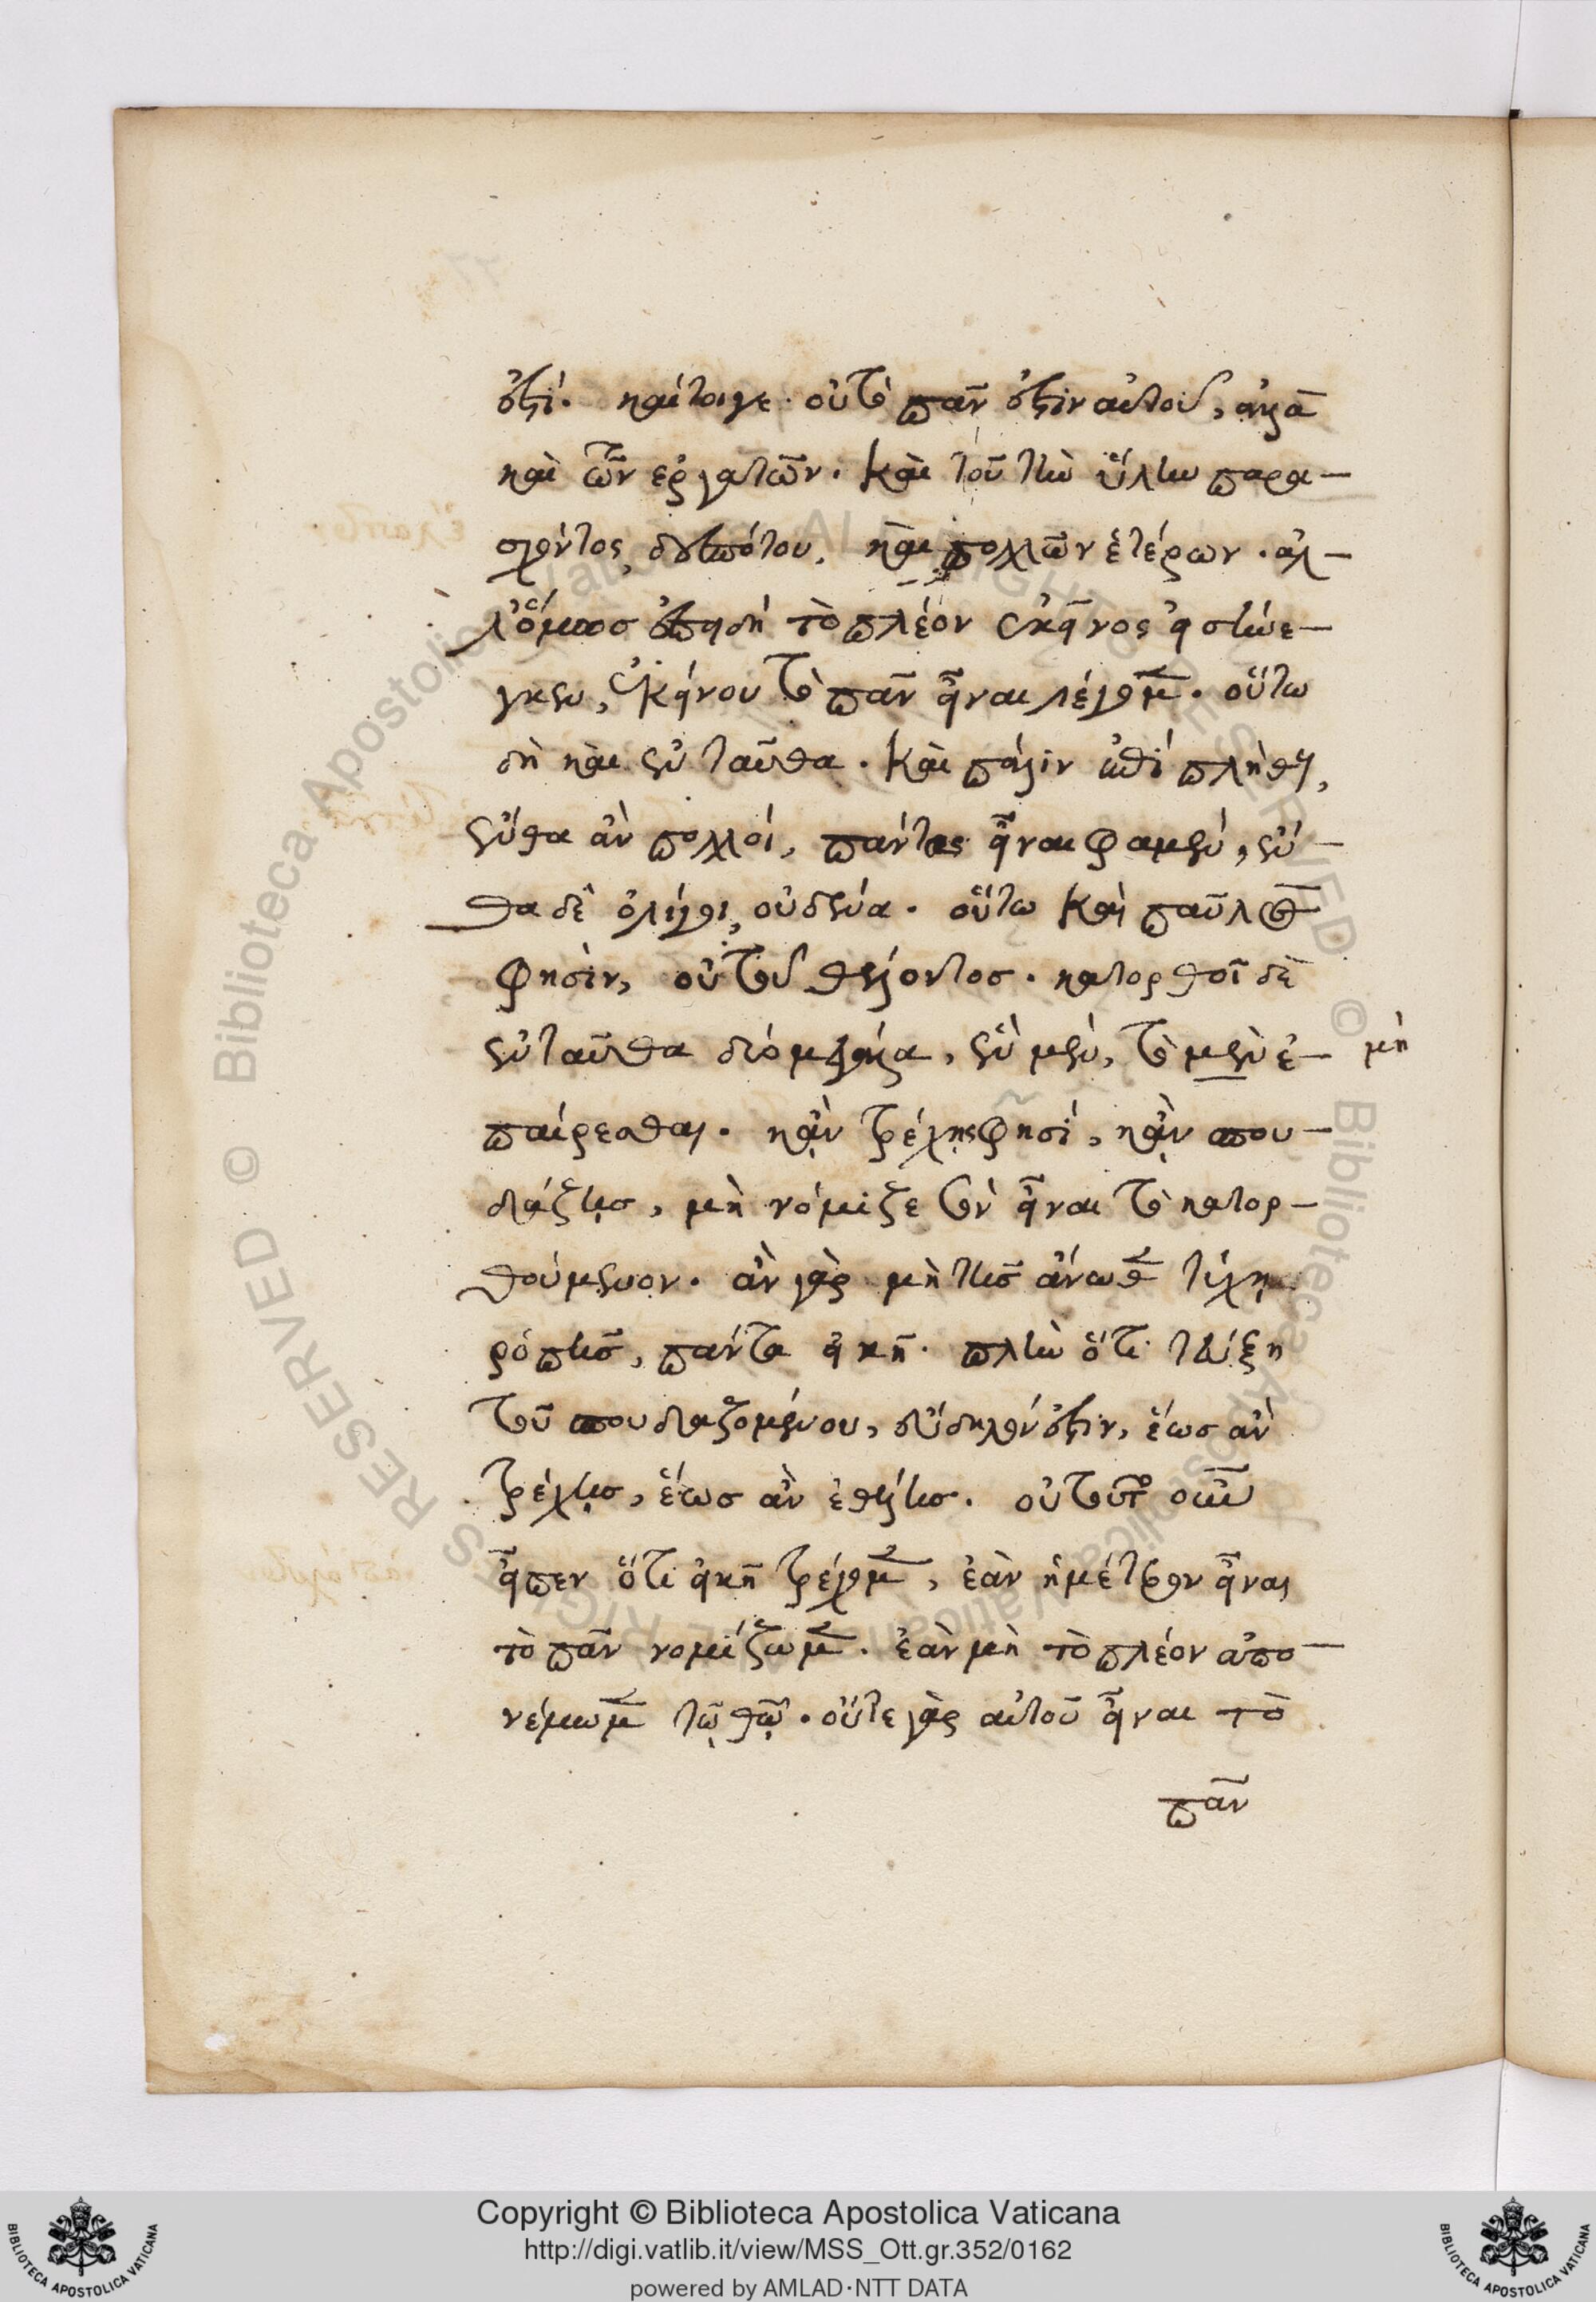 ἐστί. καίτοιγε οὐ τὸ πᾶν ἐστὶν αὐτοῦ, ἀλλὰ
καὶ τῶν ἐργατῶν. Καὶ τοῦ τὴν ὕλην παρα-
σχόντος δεσπότου, καὶ πολλῶν ἑτέρων. ἀλ-
λ' ὅμως ἐπειδὴ τὸ πλέον ἐκεῖνος εἰσήνε-
γκεν, ἐκείνου τὸ πᾶν εἶναι λέγομεν. οὕτω
δὴ καὶ ἐνταῦθα. Καὶ πάλιν ἐπὶ πλήθει,
ἔνθα ἂν πολλοί, πάντας εἶναι φαμέν, ἔν-
θα δὲ ὀλίγοι, οὐδένα. οὕτω καὶ παῦλος
φησίν, οὐ τοῦ θέλοντος. κατορθοῖ δὲ
ἐνταῦθα δύο μεγάλα, ἓν μέν, τὸ μὲν ἐ- μὴ
παίρεσθαι. κἂν τρέχῃς φησί, κἂν σπου-
δάζῃς, μὴ νόμιζε σὸν εἶναι τὸ κατορ-
θούμενον. ἂν γὰρ μὴ τῆς ἄνωθεν τύχῃς
ῥοπῆς, πάντα εἰκῆ. πλὴν ὅτι τεύξῃ
τοῦ σπουδαζομένου, εὔδηλόν ἐστιν, ἕως ἂν
τρέχῃς, ἕως ἂν ἐθέλῃς. οὐ τοῦτο οὖν
εἶπεν ὅτι εἰκῆ τρέχομεν, ἐὰν ἡμέτερον εἶναι
τὸ πᾶν νομίζωμεν. ἐὰν μὴ τὸ πλέον ἀπο-
νέμωμεν τῷ θῷ. οὔτε γὰρ αὐτοῦ εἶναι τὸ
πᾶν
Copyright © Biblioteca Apostolica Vaticana
http://digi.vatlib.it/view/MSS_Ott.gr.352/0162
powered by AMLAD·NTT DATA